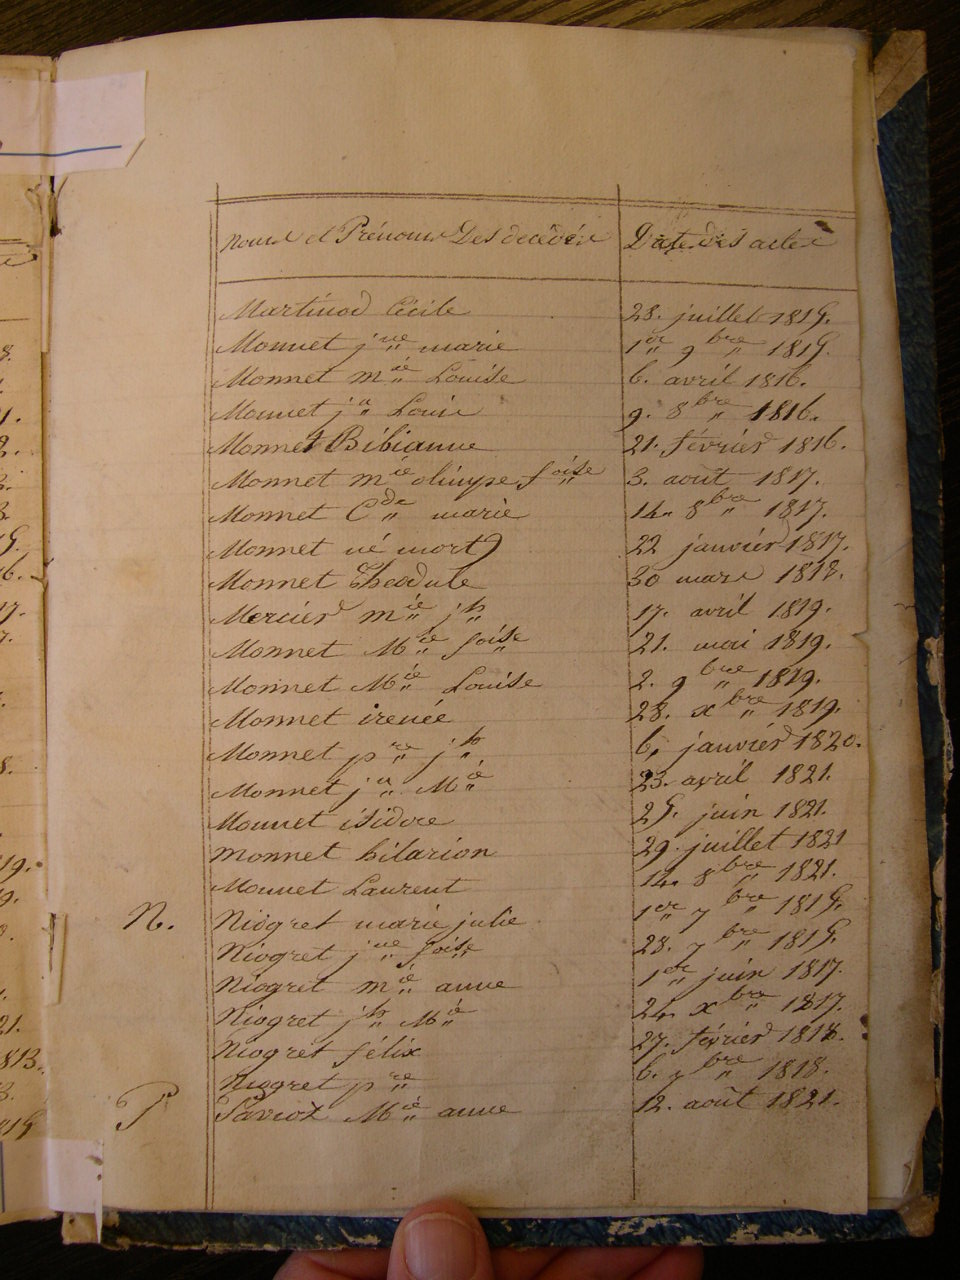 Noms et Prénoms Des decédés Date des actes
Martinod Cécile 28. juillet 1815.
Monnet jne marie 1er 9bre 1815.
Monnet mie Louise 6. avril 1816.
Monnet jn Louis 9. 8bre 1816.
Monnet Bibianne 21. février 1816.
Monnet mie olimpe foise 3. août 1817.
Monnet Cde marie 14. 8bre 1817.
Monnet né mort 22 janvier 1817.
Monnet Théodule 30 mars 1818.
Mercier mie jh 17. avril 1819.
Monnet Mie foise 21. mai 1819.
Monnet Mie Louise 2. 9bre 1819.
Monnet irenée 28. xbre 1819.
Monnet pre jh 6, janvier 1820.
Monnet jn Mie 23. avril 1821.
Monnet isidore 25. juin 1821.
monnet hilarion 29. juillet 1821
Monnet Laurent 14. 8bre 1821.
N. Niogret marie julie 1er 7bre 1815.
Niogret jne foise 28. 7bre 1815.
Niogret mie anne 1er juin 1817.
Niogret jh Mie 24. xbre 1817.
Niogret félix 27. février 1818.
Niogret pre 6. 7bre 1818.
P Paviot Mie anne 12. août 1821.